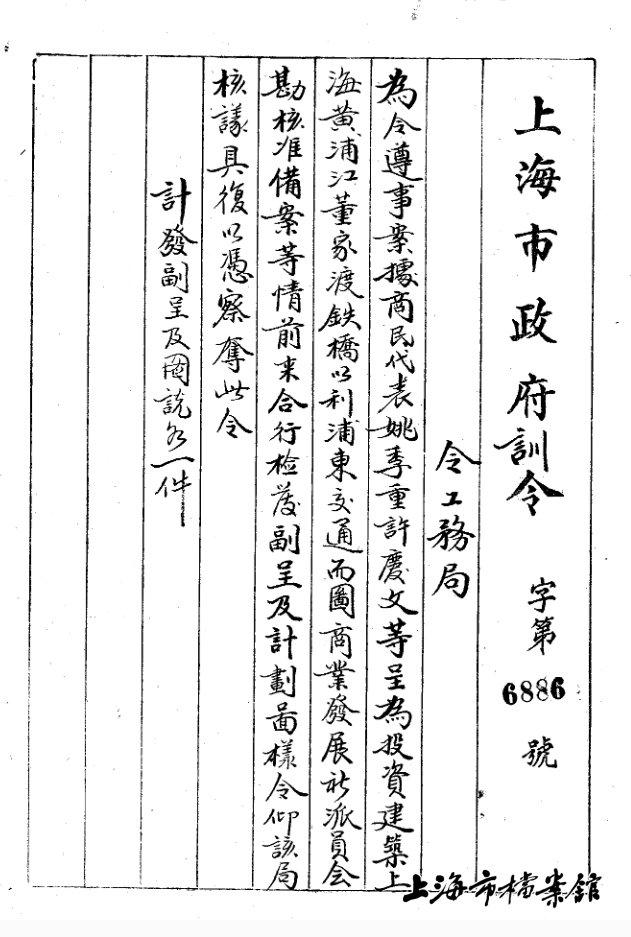 上海市政府訓令 字第6886號
令工務局
為令遵事案據商民代表姚季重許慶文等呈為投資建築上
海黃浦江董家渡鉄橋以利浦東交通而圖商業發展祈派員会
勘核准備案等情前来合行检發副呈及計劃啚樣令仰該局
核議具復以憑察奪此令
計發副呈及圖説各一件
上海市檔案館